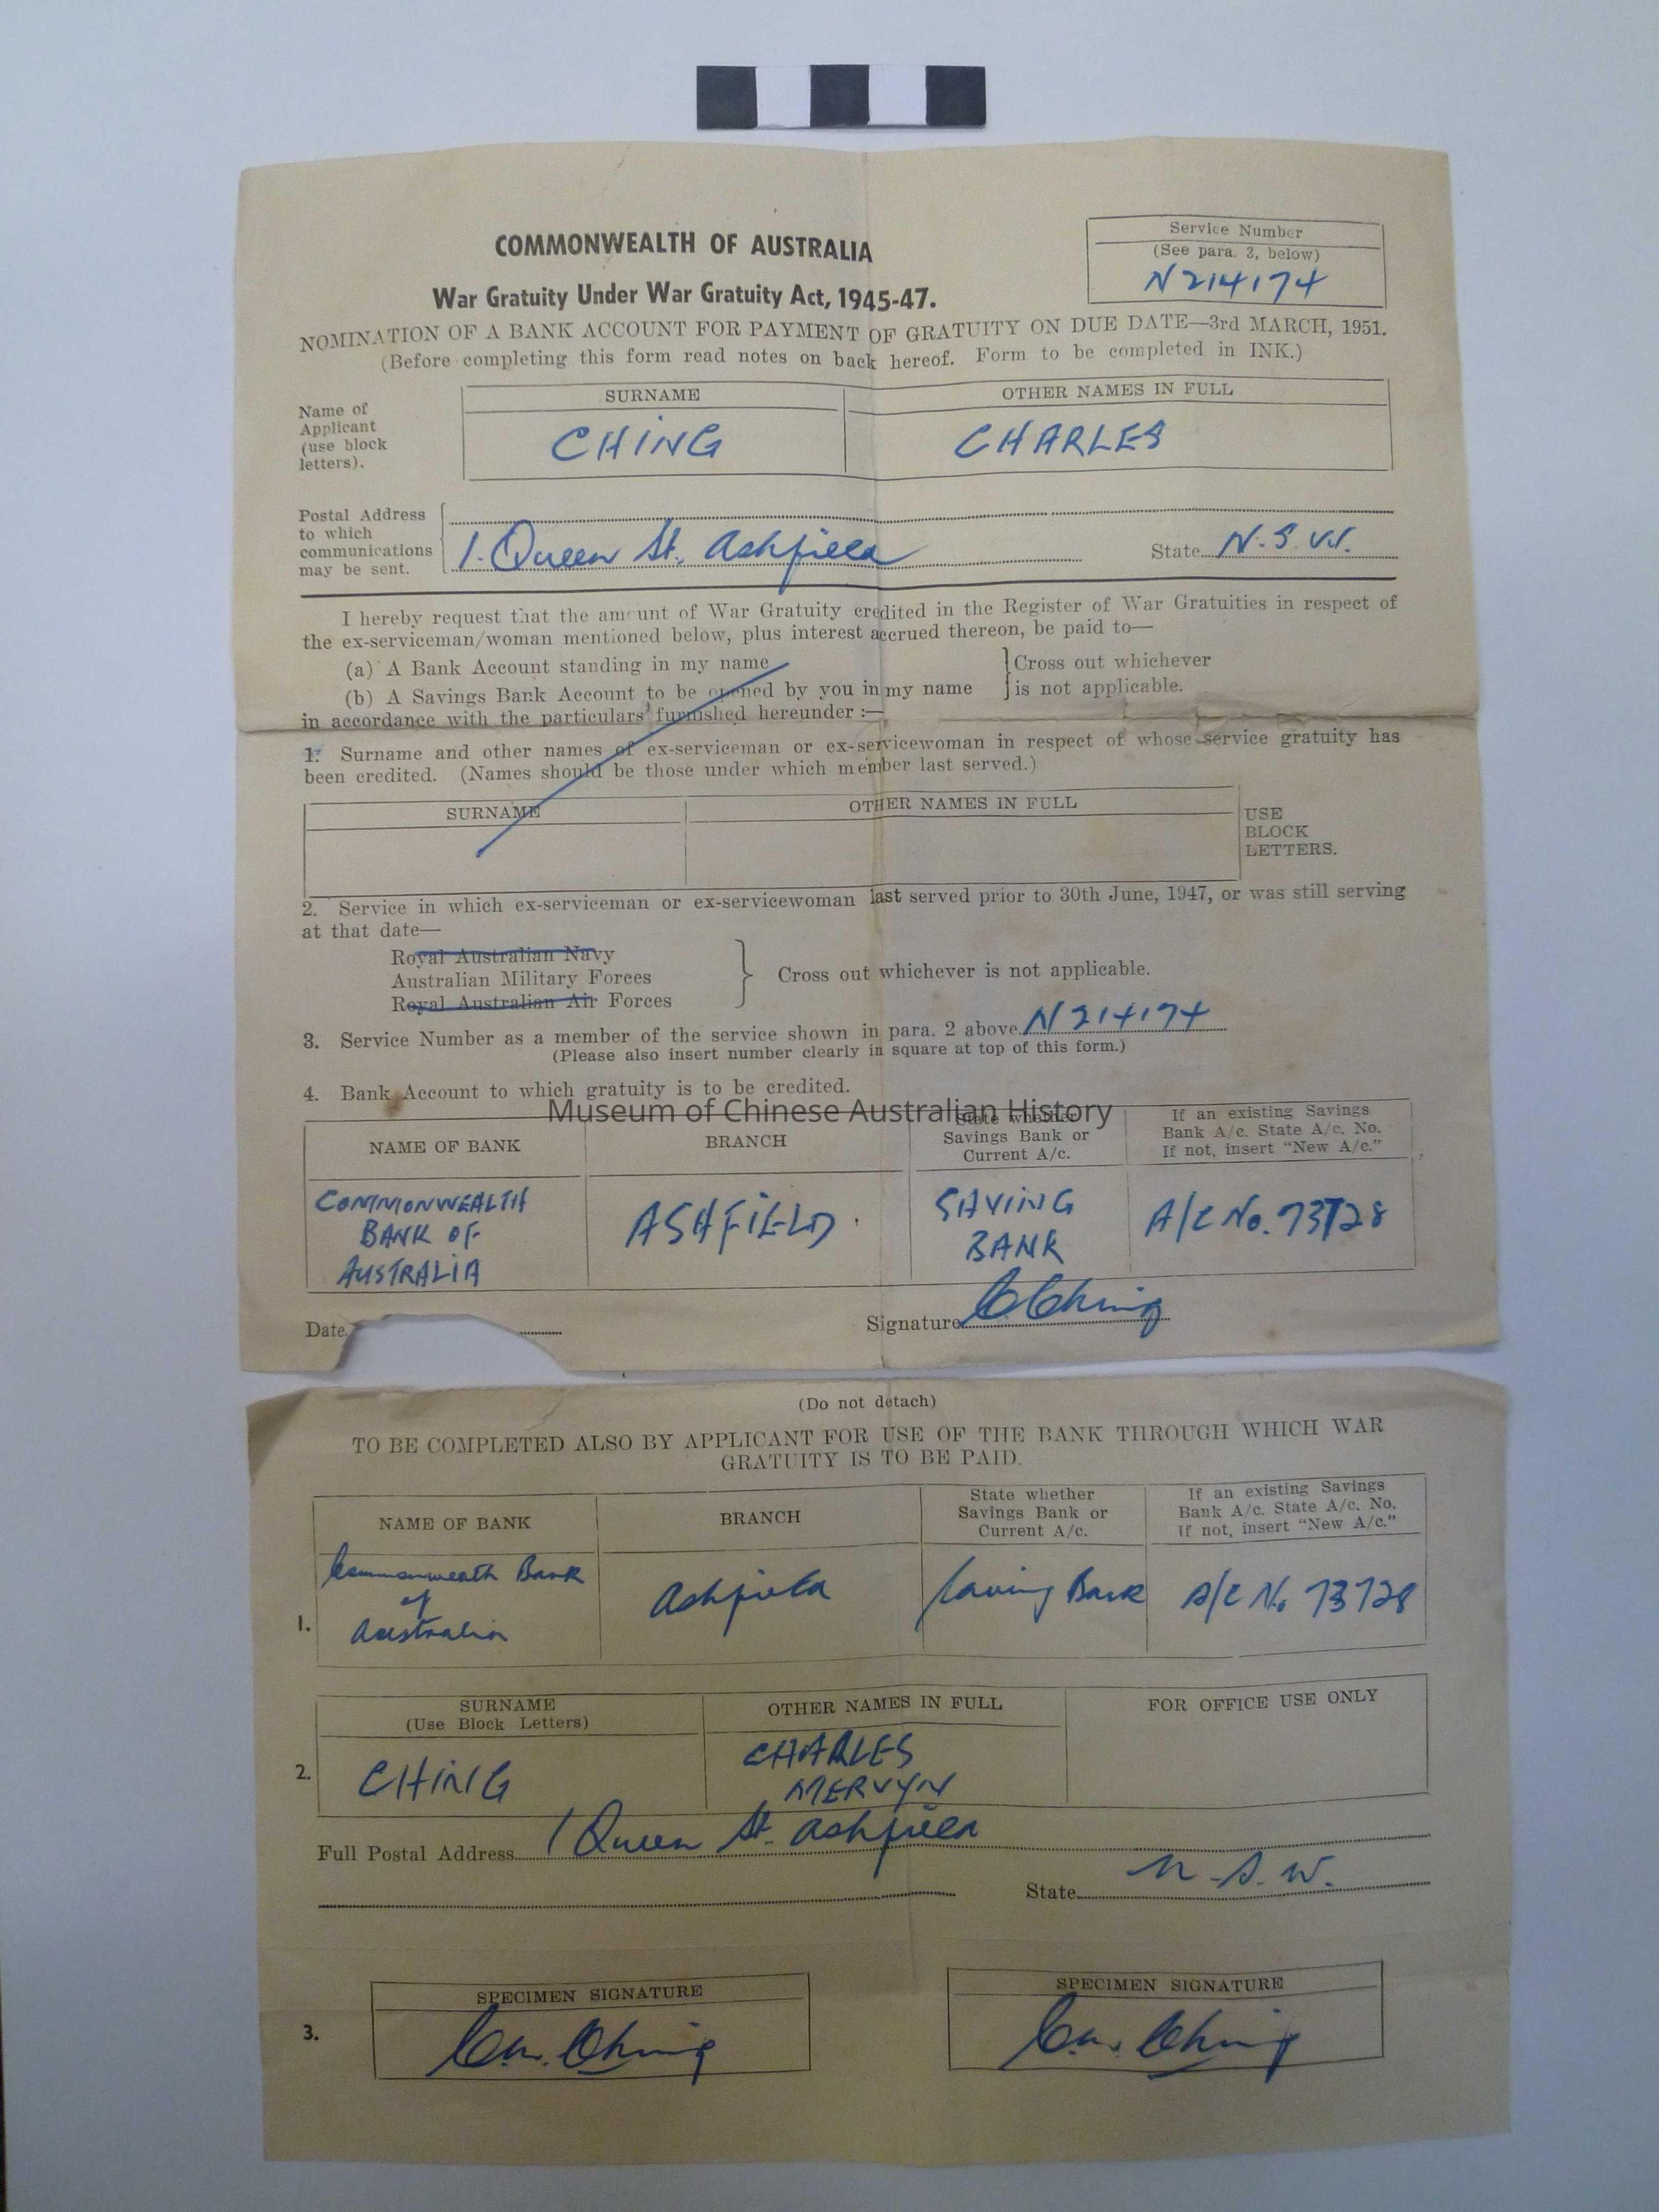 COMMONWEALTH OF AUSTRALIA
War Gratuity Under War Gratuity Act, 1945-47.
Service Number
(See para. 3, below)
N214174
NOMINATION OF A BANK ACCOUNT FOR PAYMENT OF GRATUITY ON DUE DATE—3rd MARCH, 1951.
(Before completing this form read notes on back hereof. Form to be completed in INK.)
Name of
Applicant
(use block
letters).
SURNAME
OTHER NAMES IN FULL
CHING
CHARLES
Postal Address
to which
communications
may be sent.
1. Queen St. Ashfield
State N.S.W.
I hereby request that the amount of War Gratuity credited in the Register of War Gratuities in respect of
the ex-serviceman/woman mentioned below, plus interest accrued thereon, be paid to—
(a) A Bank Account standing in my name
(b) A Savings Bank Account to be opened by you in my name
Cross out whichever
is not applicable.
in accordance with the particulars furnished hereunder :—
1. Surname and other names of ex-serviceman or ex-servicewoman in respect of whose service gratuity has
been credited. (Names should be those under which member last served.)
SURNAME
OTHER NAMES IN FULL
USE
BLOCK
LETTERS.
2. Service in which ex-serviceman or ex-servicewoman last served prior to 30th June, 1947, or was still serving
at that date—
Royal Australian Navy
Australian Military Forces
Royal Australian Air Forces
Cross out whichever is not applicable.
3. Service Number as a member of the service shown in para. 2 above N214174
(Please also insert number clearly in square at top of this form.)
4. Bank Account to which gratuity is to be credited.
Museum of Chinese Australian History
NAME OF BANK
BRANCH
State whether
Savings Bank or
Current A/c.
If an existing Savings
Bank A/c. State A/c. No.
If not, insert "New A/c."
COMMONWEALTH
BANK OF
AUSTRALIA
ASHFIELD.
SAVING
BANK
A/C No. 73728
Date
Signature C Ching
(Do not detach)
TO BE COMPLETED ALSO BY APPLICANT FOR USE OF THE BANK THROUGH WHICH WAR
GRATUITY IS TO BE PAID.
NAME OF BANK
BRANCH
State whether
Savings Bank or
Current A/c.
If an existing Savings
Bank A/c. State A/c. No.
If not, insert "New A/c."
1.
Commonweath Bank
of
Australia
Ashfield
Saving Bank
A/C No 73728
SURNAME
(Use Block Letters)
OTHER NAMES IN FULL
FOR OFFICE USE ONLY
2.
CHING
CHARLES
MERVYN
Full Postal Address 1 Queen St. Ashfield
State N.S.W.
3.
SPECIMEN SIGNATURE
C.m. Ching
SPECIMEN SIGNATURE
C.m. Ching